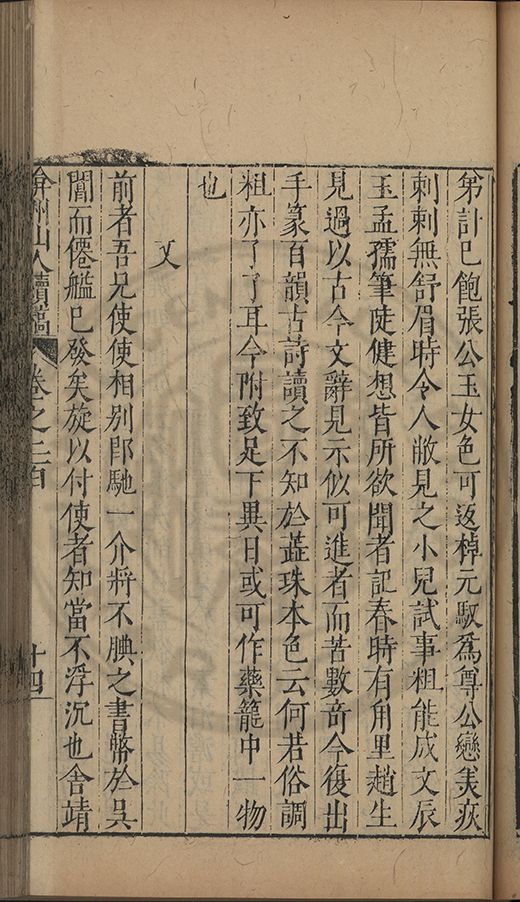 第計已飽張公玉女色可返棹元馭爲尊公戀羙疢
刺刺無舒眉時令人敝見之小兒試事粗能成文辰
玉孟孺筆陡健想皆所欲聞者記春時有甪里趙生
見過以古今文辭見示似可進者而苦數奇今復出
手篆百韻古詩讀之不知於蕋珠本色云何若俗調
粗亦了了耳今附致足下異日或可作藥籠中一物
也
又
前者吾兄使使相別郎馳一介將不腆之書幣於吳
閶而僊艦巳發矣旋以付使者知當不浮沉也舍靖
弇州山人續稿 卷之二百 十四